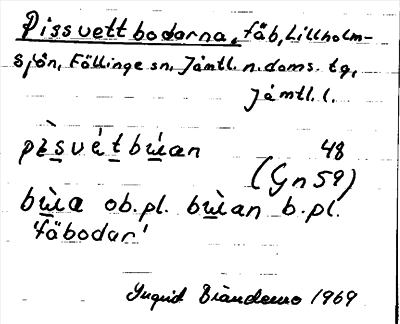 Pissvettbodarna, fäb, Lillholm-
sjön, Föllinge sn, Jämtl. n. doms. tg,
Jämtl. l.
pìsvét bùan 48
(Gn 59)
bùa ob.pl. bùan b.pl.
'fäbodar'
Ingrid 1969